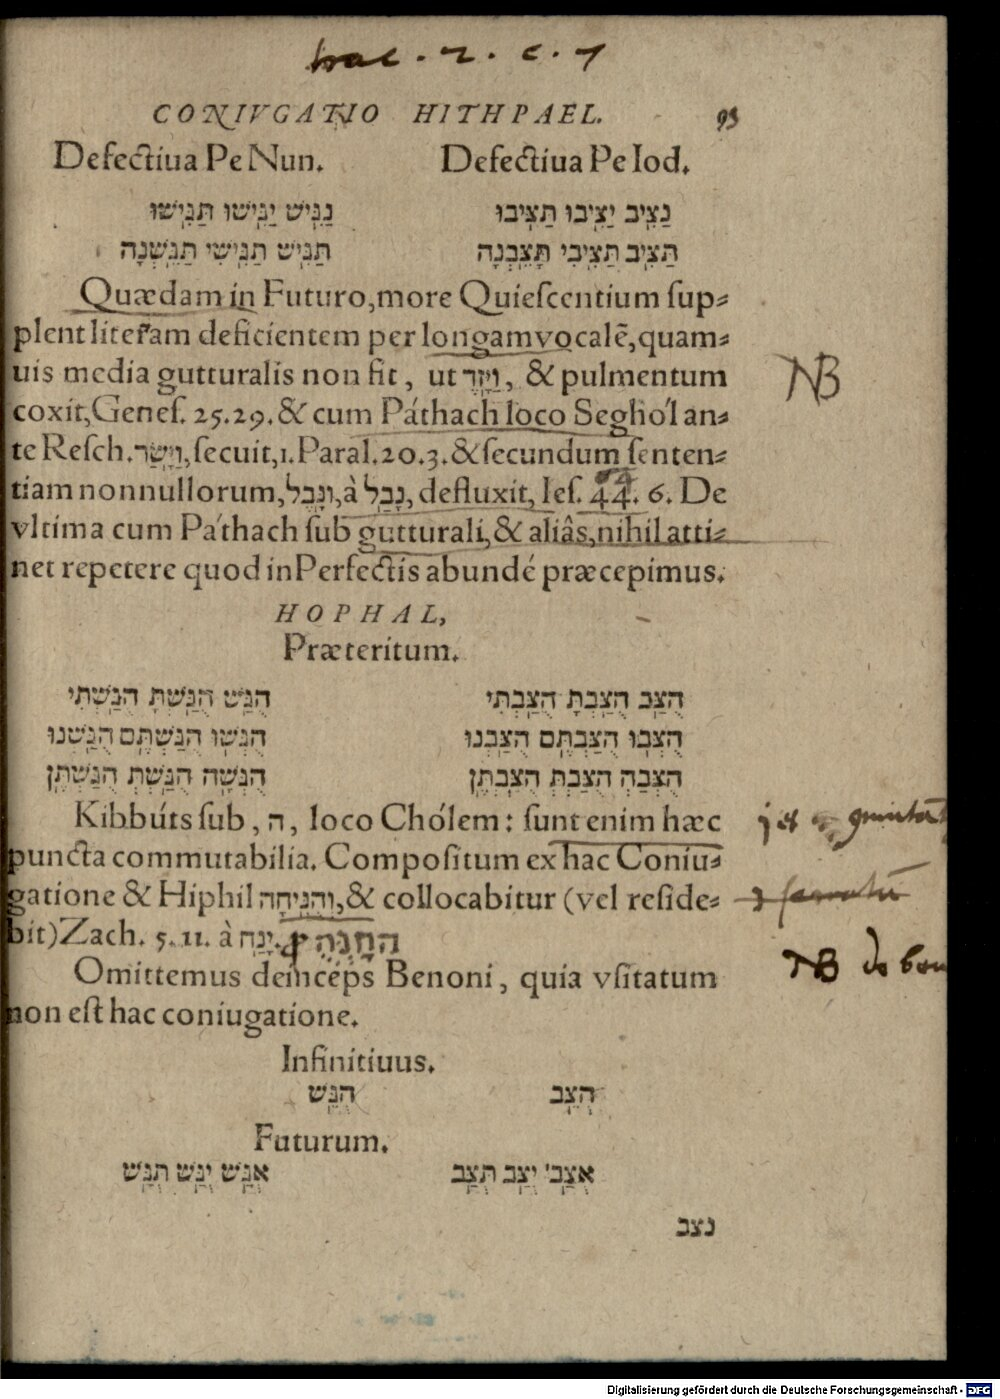 CONIVGATIO HITHPAEL. 93
Defectiua Pe Nun. Defectiua Pe Iod.
נַצִּיב יַצִּיבוּ תַצִּיבוּ נַגִּישׁ יַגִּישׁוּ תַּגִּישׁוּ
תַּצִּיב תַצִּיבִי תַּצֵּבְנָה תַּגִּישׁ תַגִּישִׁי תַּגֵּשְׁנָה
Quædam in Futuro, more Quiescentium sup⸗
plent literam deficientem per longam vocalẽ, quam⸗
uis media gutturalis non sit, ut וַיָּזֶד, & pulmentum
coxit, Genes. 25.29. & cum Páthach loco Seghól an⸗
te Resch. וַיָּשַׂר, secuit, 1. Paral. 20.3. & secundum senten⸗
tiam nonnullorum, וַנָּבֶל, à נָבַל, defluxit, Ies. 44. 6. De
vltima cum Páthach sub gutturali, & aliâs, nihil atti⸗
net repetere quod in Perfectis abundé præcepimus.
HOPHAL,
Præteritum.
הֻצַּב הֻצַּבְתָּ הֻצַּבְתִּי הֻגַּשׁ הֻגַּשְׁתָּ הֻגַּשְׁתִּי
הֻצְּבוּ הֻצַּבְתֶּם הֻצַּבְנוּ הֻגְּשׁוּ הֻגַּשְׁתֶּם הֻגַּשְׁנוּ
הֻצְּבָה הֻצַּבְתְּ הֻצַּבְתֶּן הֻגְּשָׁה הֻגַּשְׁתְּ הֻגַּשְׁתֶּן
Kibbúts sub, ה, loco Chólem: sunt enim hæc
puncta commutabilia. Compositum ex hac Coniu⸗
gatione & Hiphil וְהֻנִּיחָה, & collocabitur (vel reside⸗
bit) Zach. 5.11. à יָנַח.
Omittemus deinceps Benoni, quia vsitatum
non est hac coniugatione.
Infinitiuus.
הֻצַּב הֻגַּשׁ
Futurum.
אֻצַּב יֻצַּב תֻּצַּב אֻגַּשׁ יֻגַּשׁ תֻּגַּשׁ
נצב
NB
NB de
Digitalisierung gefördert durch die Deutsche Forschungsgemeinschaft - DFG